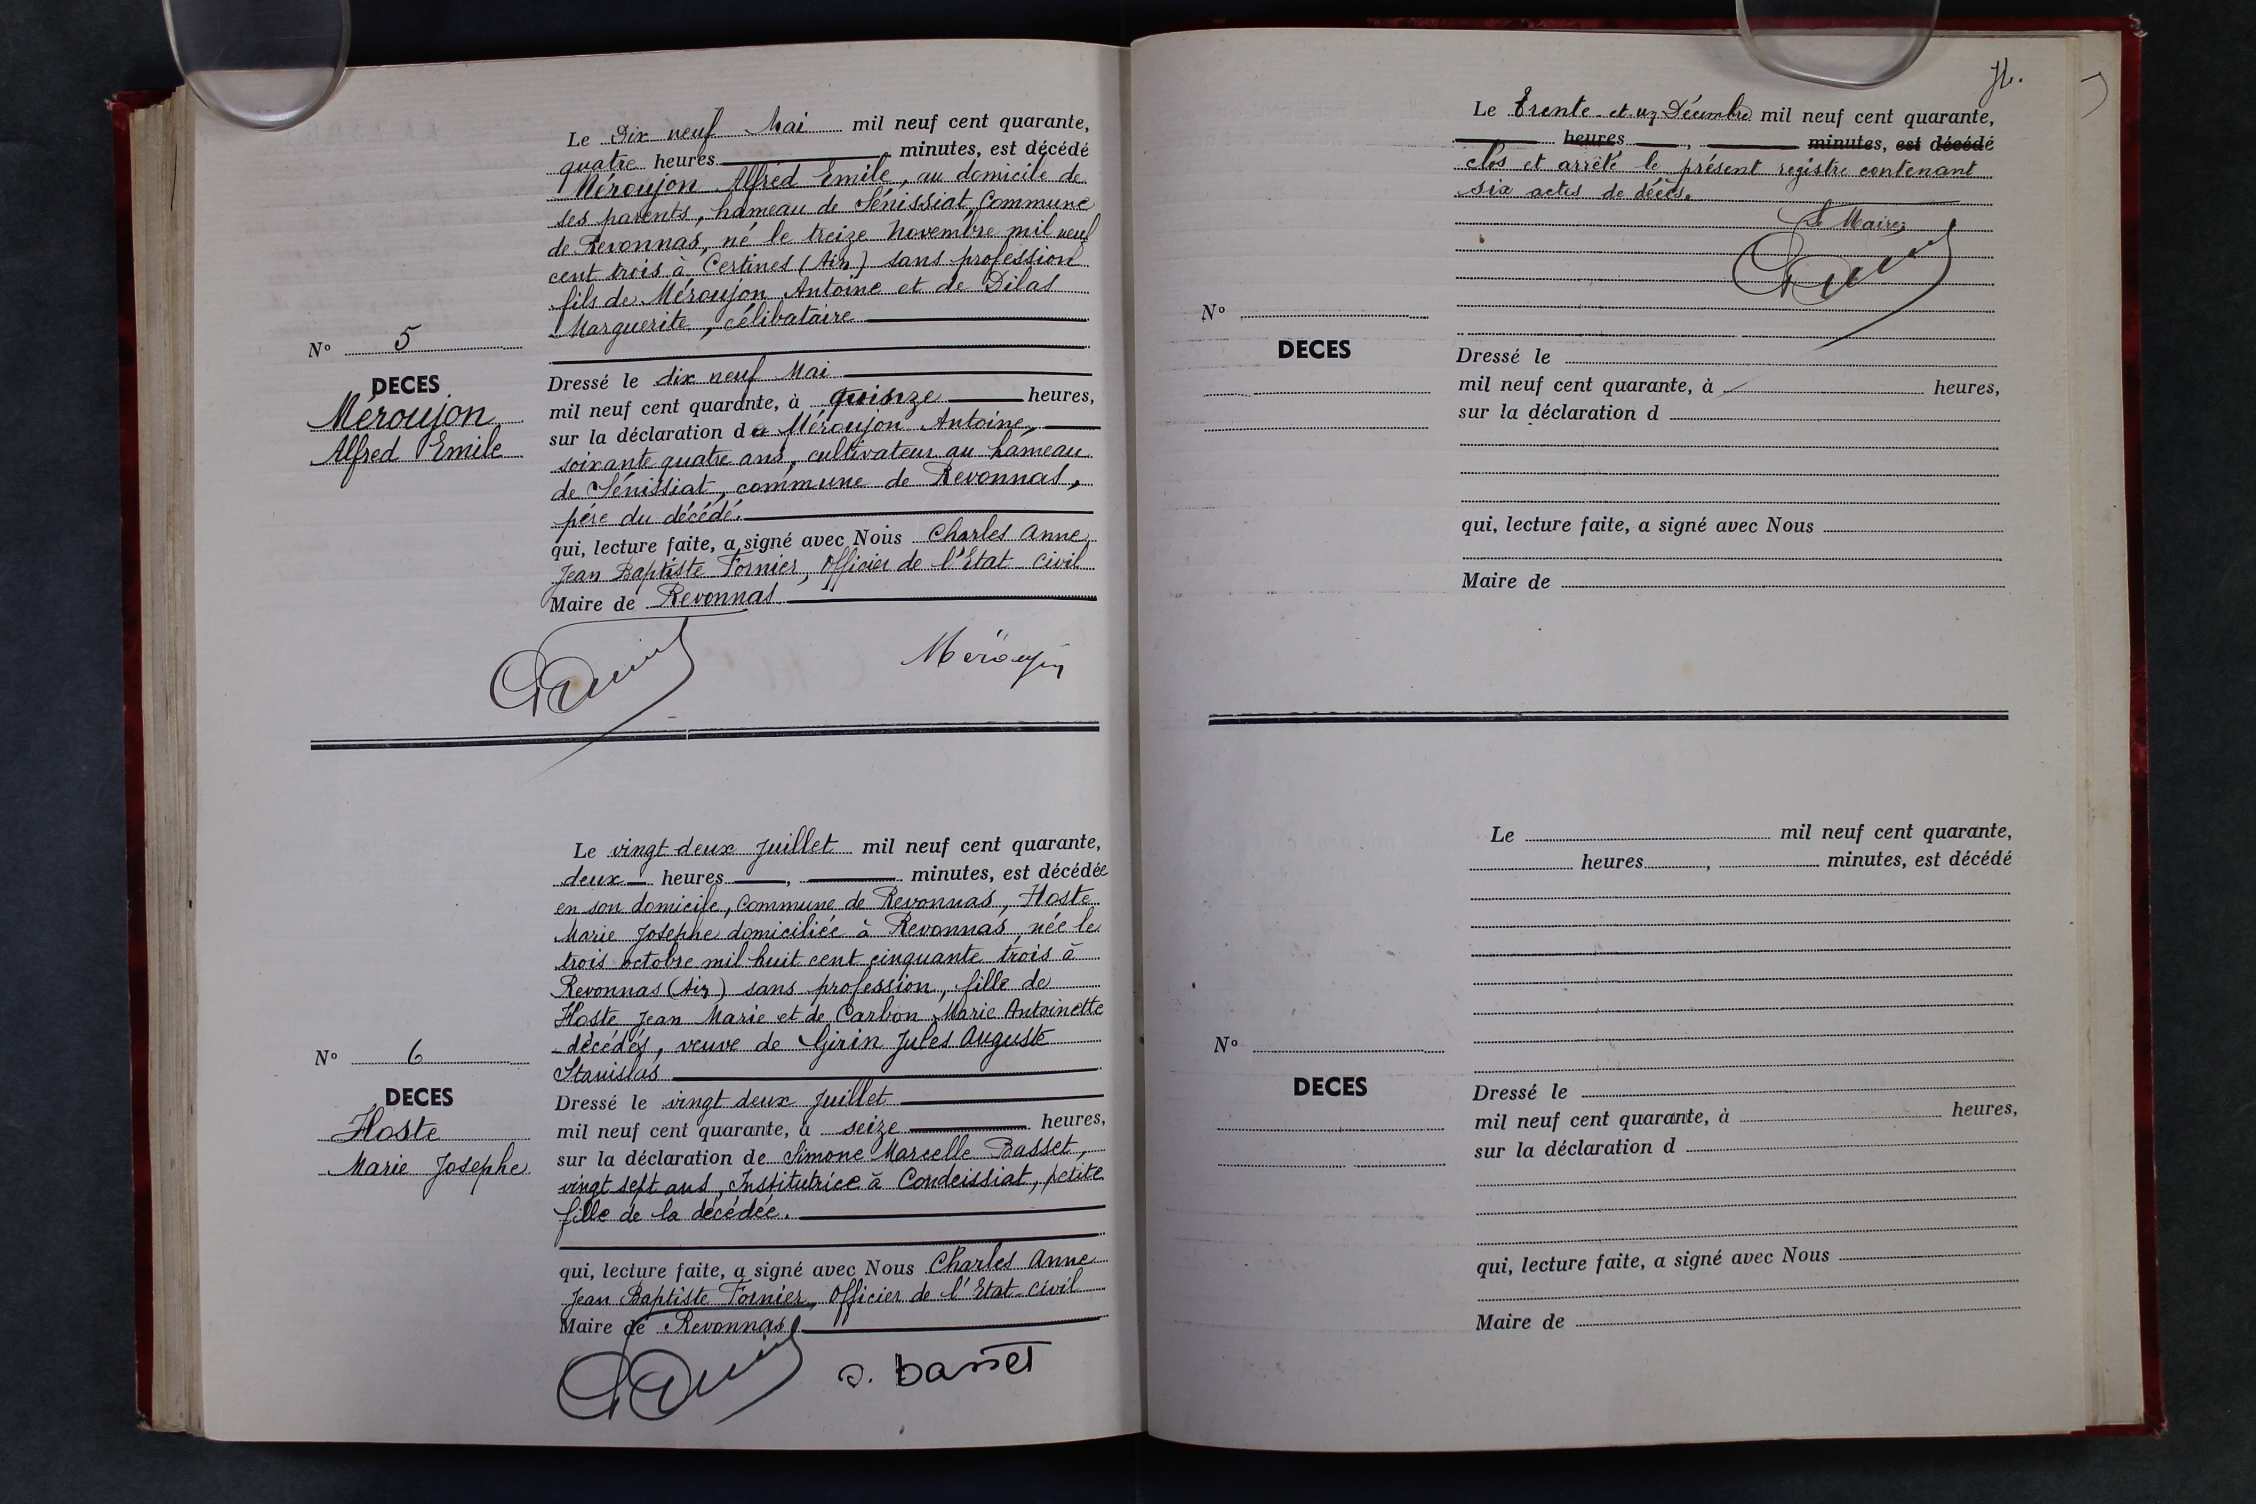 Le Dix neuf Mai mil neuf cent quarante,
quatre heures minutes, est décédé
Méroujon Alfred Emile, au domicile de
ses parents, hameau de Sénissiat, Commune
de Revonnas, né le treize Novembre mil neuf
cent trois à Certines (Ain) sans profession
fils de Méroujon Antoine et de Dilas
Marguerite, célibataire
N° 5
DECES
Méroujon
Alfred Emile
Dressé le dix neuf Mai
mil neuf cent quarante, à quinze heures,
sur la déclaration de Méroujon Antoine,
soixante quatre ans, cultivateur au hameau
de Sénissiat, commune de Revonnas,
père du décédé.
qui, lecture faite, a signé avec Nous Charles Anne
Jean Baptiste Fornier, Officier de l'Etat civil
Maire de Revonnas
Méroujon
Le vingt deux Juillet mil neuf cent quarante,
deux heures , minutes, est décédée
en son domicile, commune de Revonnas, Hoste
Marie Josephe domiciliée à Revonnas, née le
trois octobre mil huit cent cinquante trois à
Revonnas (Ain) sans profession, fille de
Hoste Jean Marie et de Carbon Marie Antoinette
décédés, veuve de Girin Jules Auguste
Stanislas
N° 6
DECES
Hoste
Marie Josephe
Dressé le vingt deux Juillet
mil neuf cent quarante, à seize heures,
sur la déclaration de Simone Marcelle Basset,
vingt sept ans, Institutrice à Condeissiat, petite
fille de la décédée.
qui, lecture faite, a signé avec Nous Charles Anne
Jean Baptiste Fornier, Officier de l'Etat-civil
Maire de Revonnas
S. Basset
Le Trente et un Décembre mil neuf cent quarante,
heures , minutes, est décédé
clos et arrêté le présent registre contenant
six actes de décès.
Le Maire
N°
DECES
Dressé le
mil neuf cent quarante, à heures,
sur la déclaration d
qui, lecture faite, a signé avec Nous
Maire de
Le mil neuf cent quarante,
heures , minutes, est décédé
N°
DECES
Dressé le
mil neuf cent quarante, à heures,
sur la déclaration d
qui, lecture faite, a signé avec Nous
Maire de